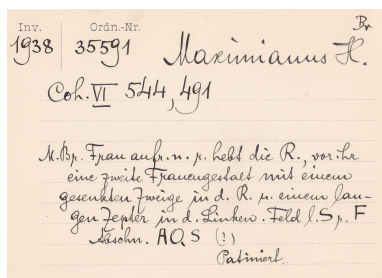 Inv. Ordn.-Nr. Br
1938 35591 Maximianus H.
Coh. VI 544, 491
M.Br. Frau aufr. n. r. hebt die R., vor ihr
eine zweite Frauengestalt mit einem
gesenkten Zweige in d. R. u. einem lan-
gen Zepter in d. Linken. Feld l. S r. F
Abschn. AQS (?)
Patiniert.